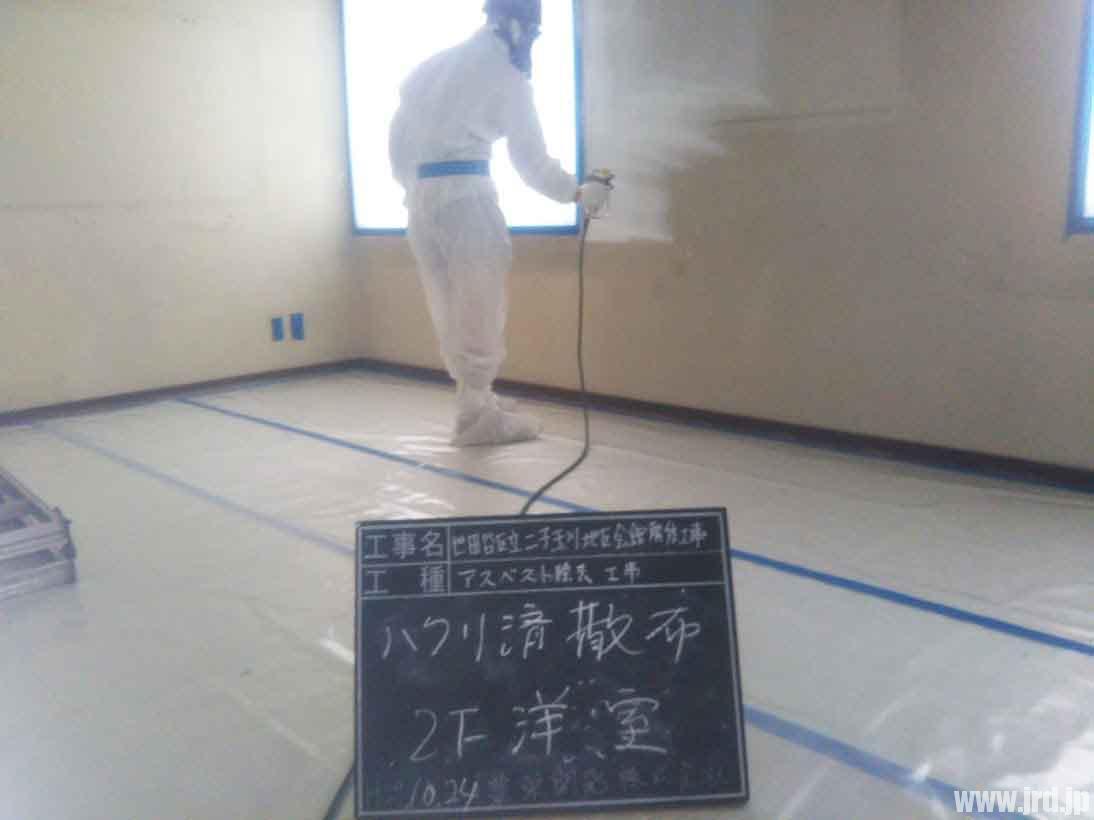 工事名 世田谷区立二子玉川地区会館解体工事
工種 アスベスト除去工事
ハクリ済散布
2F 洋室
10.24
www.jrd.jp